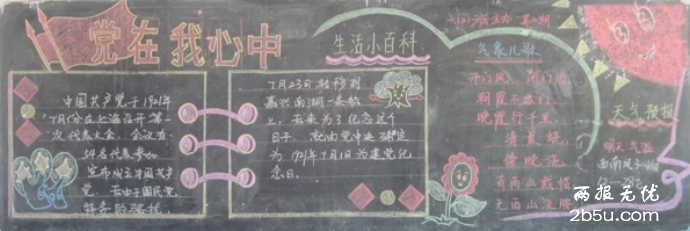 党在我心中
中国共产党于1921年
7月份在上海召开第一
次代表大会,会议在
名代表参加
宣布成立中国共产
党,若由于国民党
特务的骚扰,
生活小百科
7月23日转移到
嘉兴南湖一条船
上,后来为了纪念这个
日子,就由党中央
为1921年7月1日为建党纪
念日。
气象儿歌
开门风,闭门雨
朝霞不出门,
晚霞行千里。
清晨烧,
傍晚
有雨山戴帽
无雨山没腰
天气预报
明天气温
西南风
两报无忧
2b5u.com